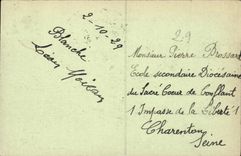 2-10-29
Blanche
29
Monsieur Pierre Brossard
Ecole secondaire Diocésaine
du Sacré Coeur de Conflans
1 Impasse de la Liberté 1
Charenton
Seine